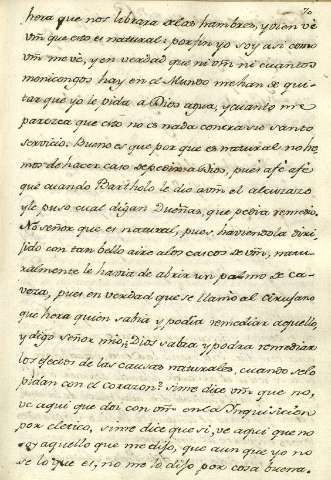 70
hera que nos librara de las hambres, y vien vè
vm̃ que esto es natural: por fin yo soy asi como
vm̃ me vè, y en verdad que ni vm̃ ni cuantos
monicongos hay en el Mundo me han de qui-
tar que yo le pida à Dios agua, y cuanto me
parezca que esto no es nada contra su santo
servicio. Bueno es que por que es natural no he
mos de hacer caso de pedirsela à Dios, pues afè afè
que cuando Bartholo le dio à vm̃ el alcorazo
y le puso cual digan Dueñas, que pedia remedio.
No señor que es natural, pues, haviendola diri-
jido con tan bello aire a los cascos de vm̃, natu-
ralmente le havia de abrir un palmo de ca-
veza, pues en verdad que se llamò al Cirujano
que hera quien savia y podia remediar aquello,
y digo señor mio, ¿Dios sabra y podra remediar
los efectos de las causas naturales, cuando se lo
pidan con el corazon? si me dice vm̃ que no,
ve aqui que doi con vm̃ en la Inquisicion
por eletico, si me dice que si, ve aqui que no
soy aquello que me dijo, que aun que yo no
se lo que es, no me lo dijo por cosa buena.